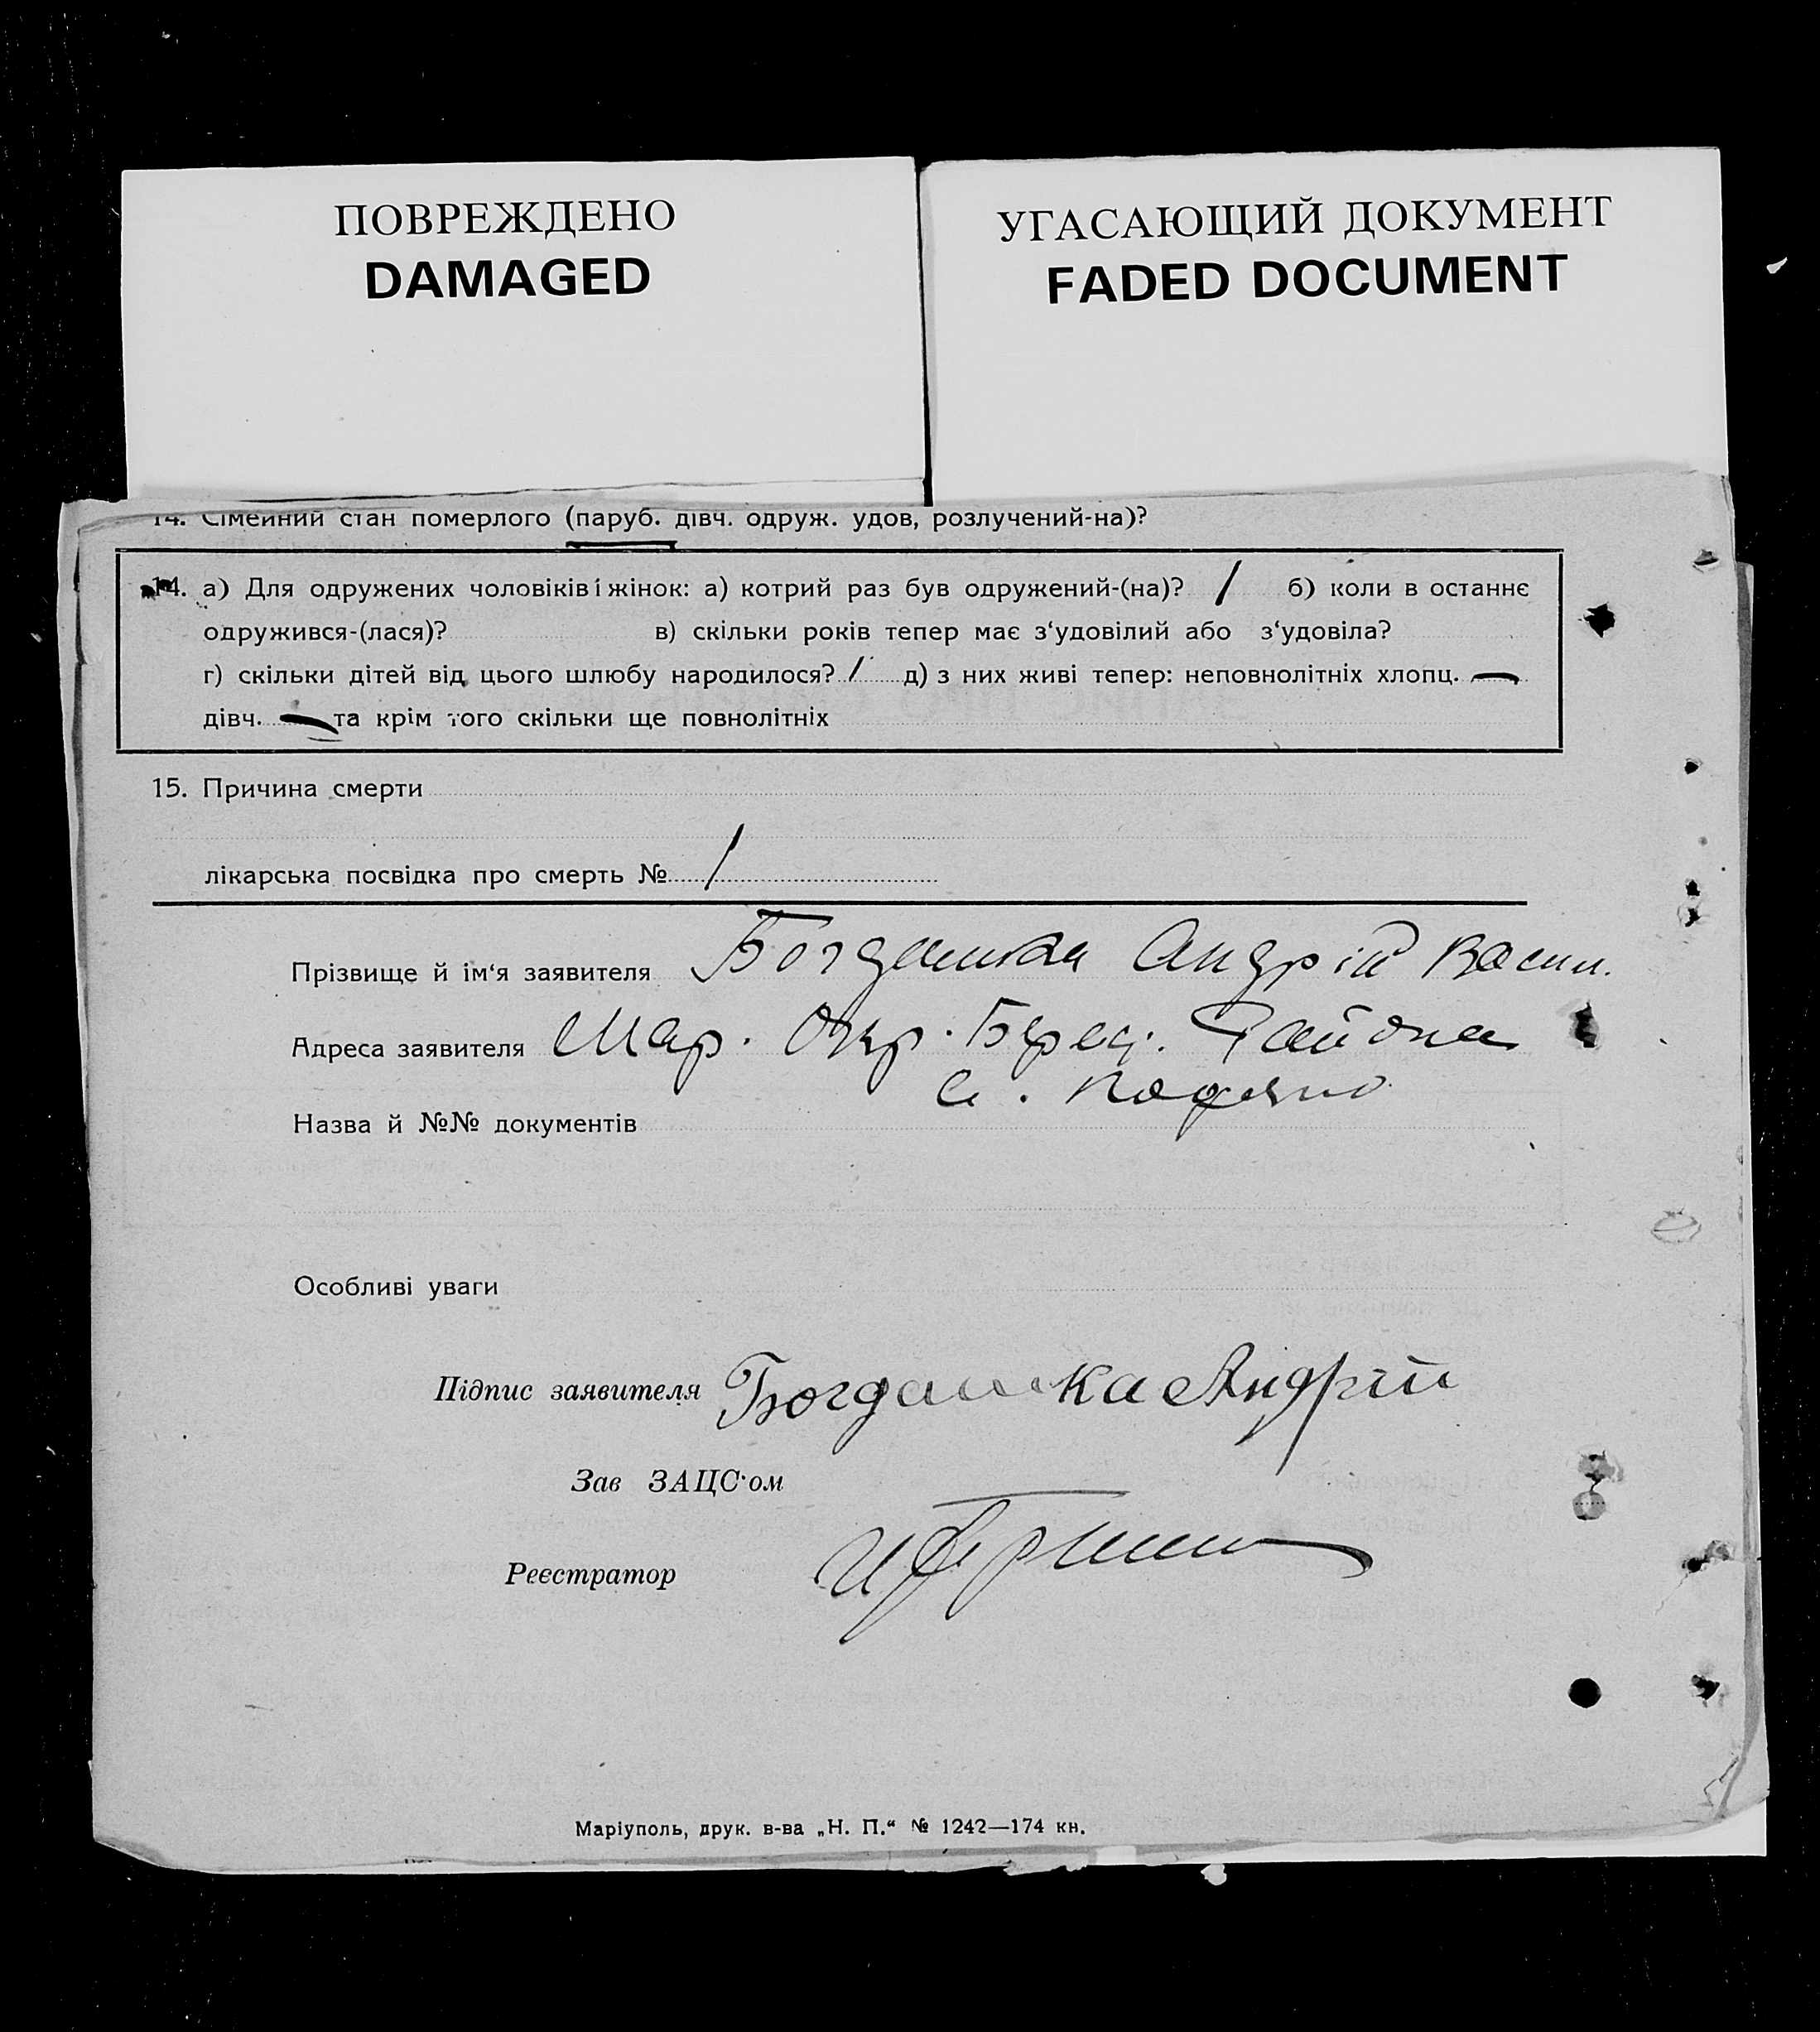 ПОВРЕЖДЕНО
DAMAGED
УГАСАЮЩИЙ ДОКУМЕНТ
FADED DOCUMENT
14. Сімейний стан померлого (паруб. дівч. одруж. удов, розлучений-на)?
14. а) Для одружених чоловіків і жінок: а) котрий раз був одружений-(на)? / б) коли в останнє
одружився-(лася)? в) скільки років тепер має з‘удовілий або з‘удовіла?
г) скільки дітей від цього шлюбу народилося? / д) з них живі тепер: неповнолітніх хлопц. —
дівч. — та крім того скільки ще повнолітніх
15. Причина смерти
лікарська посвідка про смерть № /
Прізвище й ім‘я заявителя Богдашка Андрій Васил.
Адреса заявителя Мар. Окр. Района
с.
Назва й №№ документів
Особливі уваги
Підпис заявителя Богдашка Андрій
Зав ЗАЦС‘ом
Реєстратор
Маріуполь, друк. в-ва „Н. П.“ № 1242—174 кн.